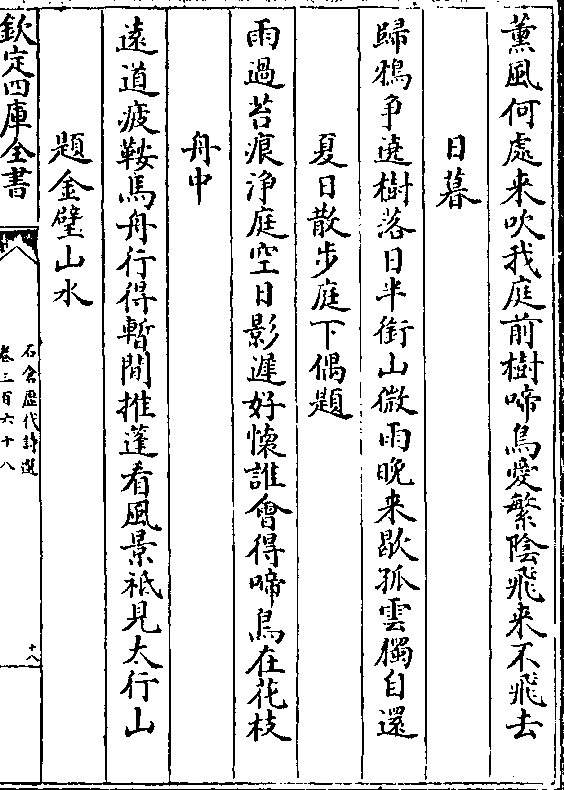 薫風何處来吹我庭前樹啼鳥愛繁陰飛来不飛去
日暮
歸鴉爭遶樹落日半銜山微雨晚来歇孤雲獨自還
夏日散步庭下偶題
雨過苔痕淨庭空日影遲好懷誰會得啼鳥在花枝
舟中
遠道疲鞍馬舟行得暫閒推蓬看風景祗見太行山
題金璧山水
欽定四庫全書
石倉歷代詩選
卷三百六十八
十八